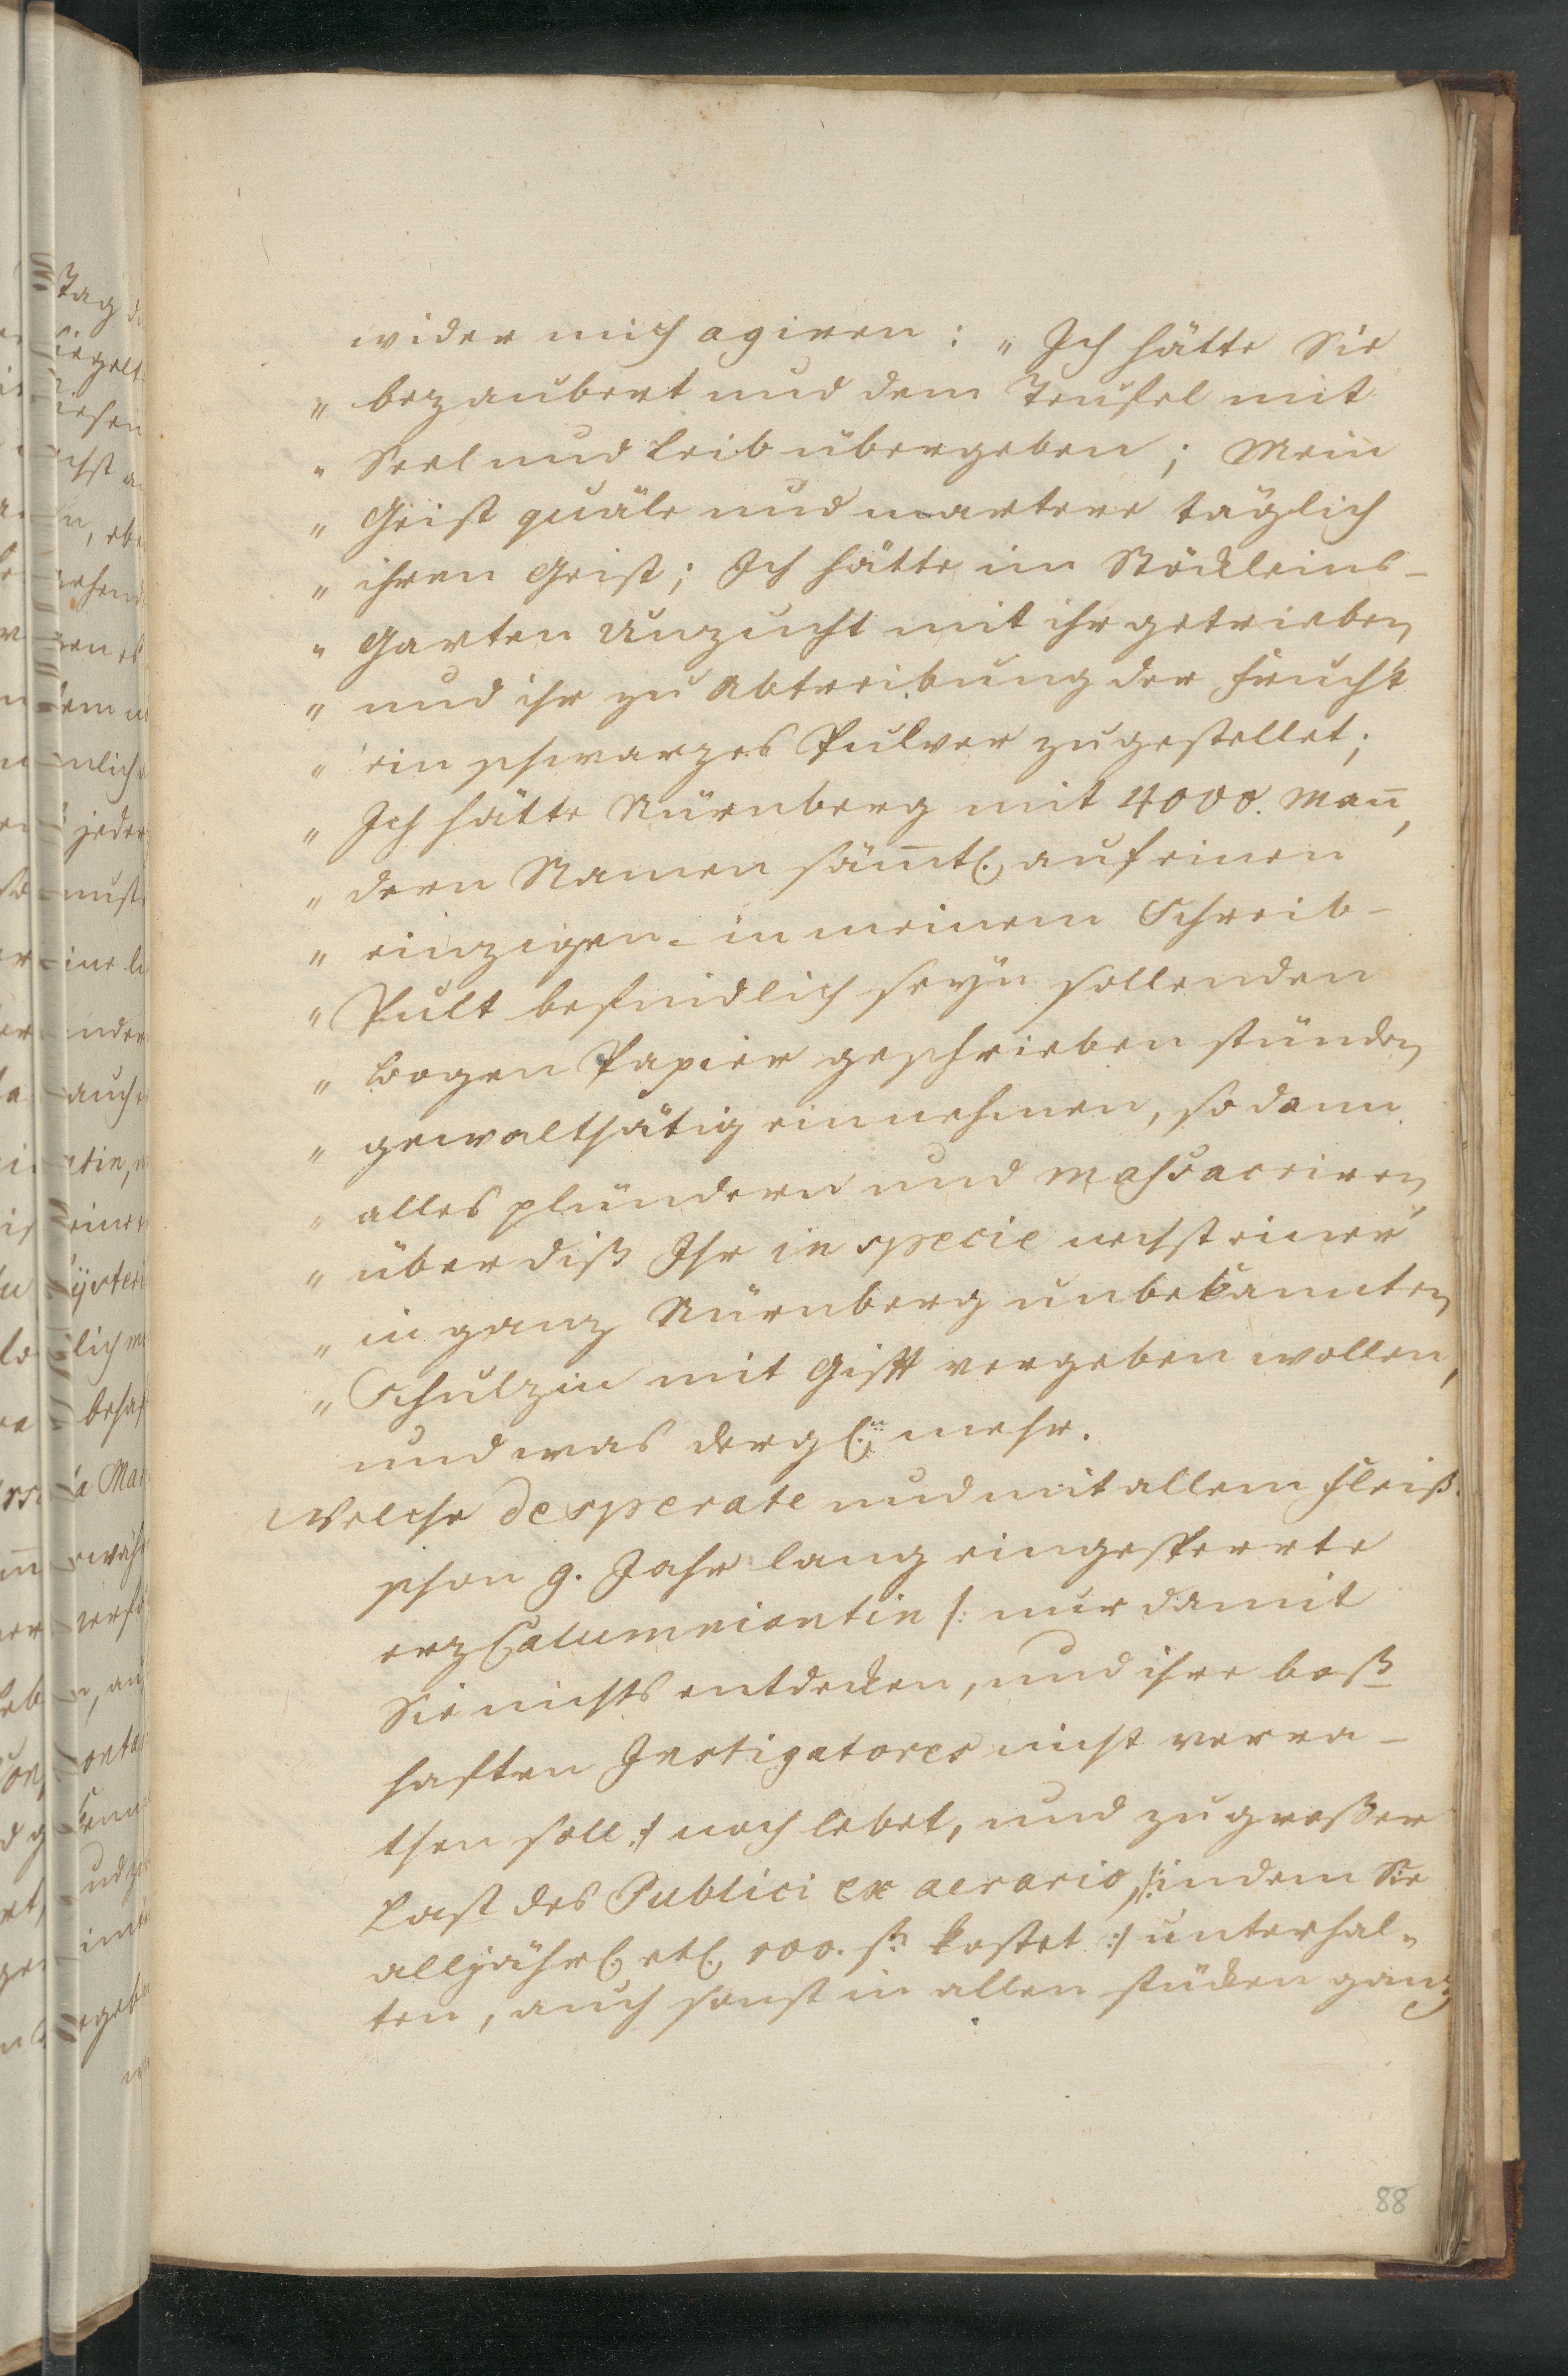 wider mich agiren: „Ich hätte Sie
„bezaubert und dem Teufel mit
„Seel und Leib übergeben; Mein
„Geist quäle und martere täglich
„ihren Geist; Ich hätte im Stöckleins-
„Garten Unzucht mit ihr getrieben
„und ihr zu Abtreibung der Frucht
„ein schwarzes Pulver zugestellet;
„Ich hätte Nürnberg mit 4000. Mañ,
„deren Namen säm̃tl. auf einen
„einzigen- in meinem Schreib-
„Pult befindlich seyn sollenden
„Bogen Papier geschrieben stünden
„gewaltthätig einnehmen, sodann
„alles plündern und massacriren,
„über diß Ihr in specie nebst einer
„in ganz Nürnberg unbekannten
„Schulzin mit Gifft vergeben wollen,
und was dergl.n mehr.
Welche desperate und mit allem Fleiß
schon 9. Jahr lang eingesperrte
erz Calumniantin /: nur damit
Sie nichts entdecken, und ihre boß-
hafften Instigatores nicht verra-
then soll :/ noch lebet, und zu großer
Last des Publici ex aerario, /: indem Sie
alljährl. etl. 100. fl. kostet :/ unterhal-
ten, auch sonst in allen stücken ganz
88